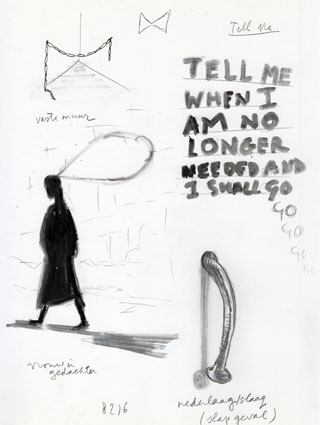 Tell Me
TELL ME
WHEN I
AM NO
LONGER
NEEDED AND
I SHALL GO
GO
GO
GO
GO
vaste muur
vrouw in
gedachten
8216
nederlaag/slaag
(slap geval)